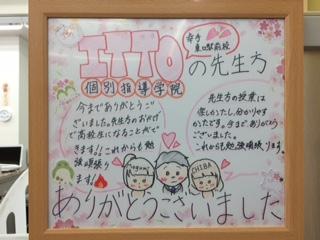 ITTO
幸手
東口駅前校
個別指導学院
の先生方
今までありがとうご
ざいました。先生方のおかげ
で高校生になることがで
きます!!これからも勉
強頑張り
ます
先生方の授業は
楽しかったし、分かりやす
かったです。今まで、ありがとう
ございました。
これからも勉強頑張ります。
Megumi
CHIBA
ありがとうございました